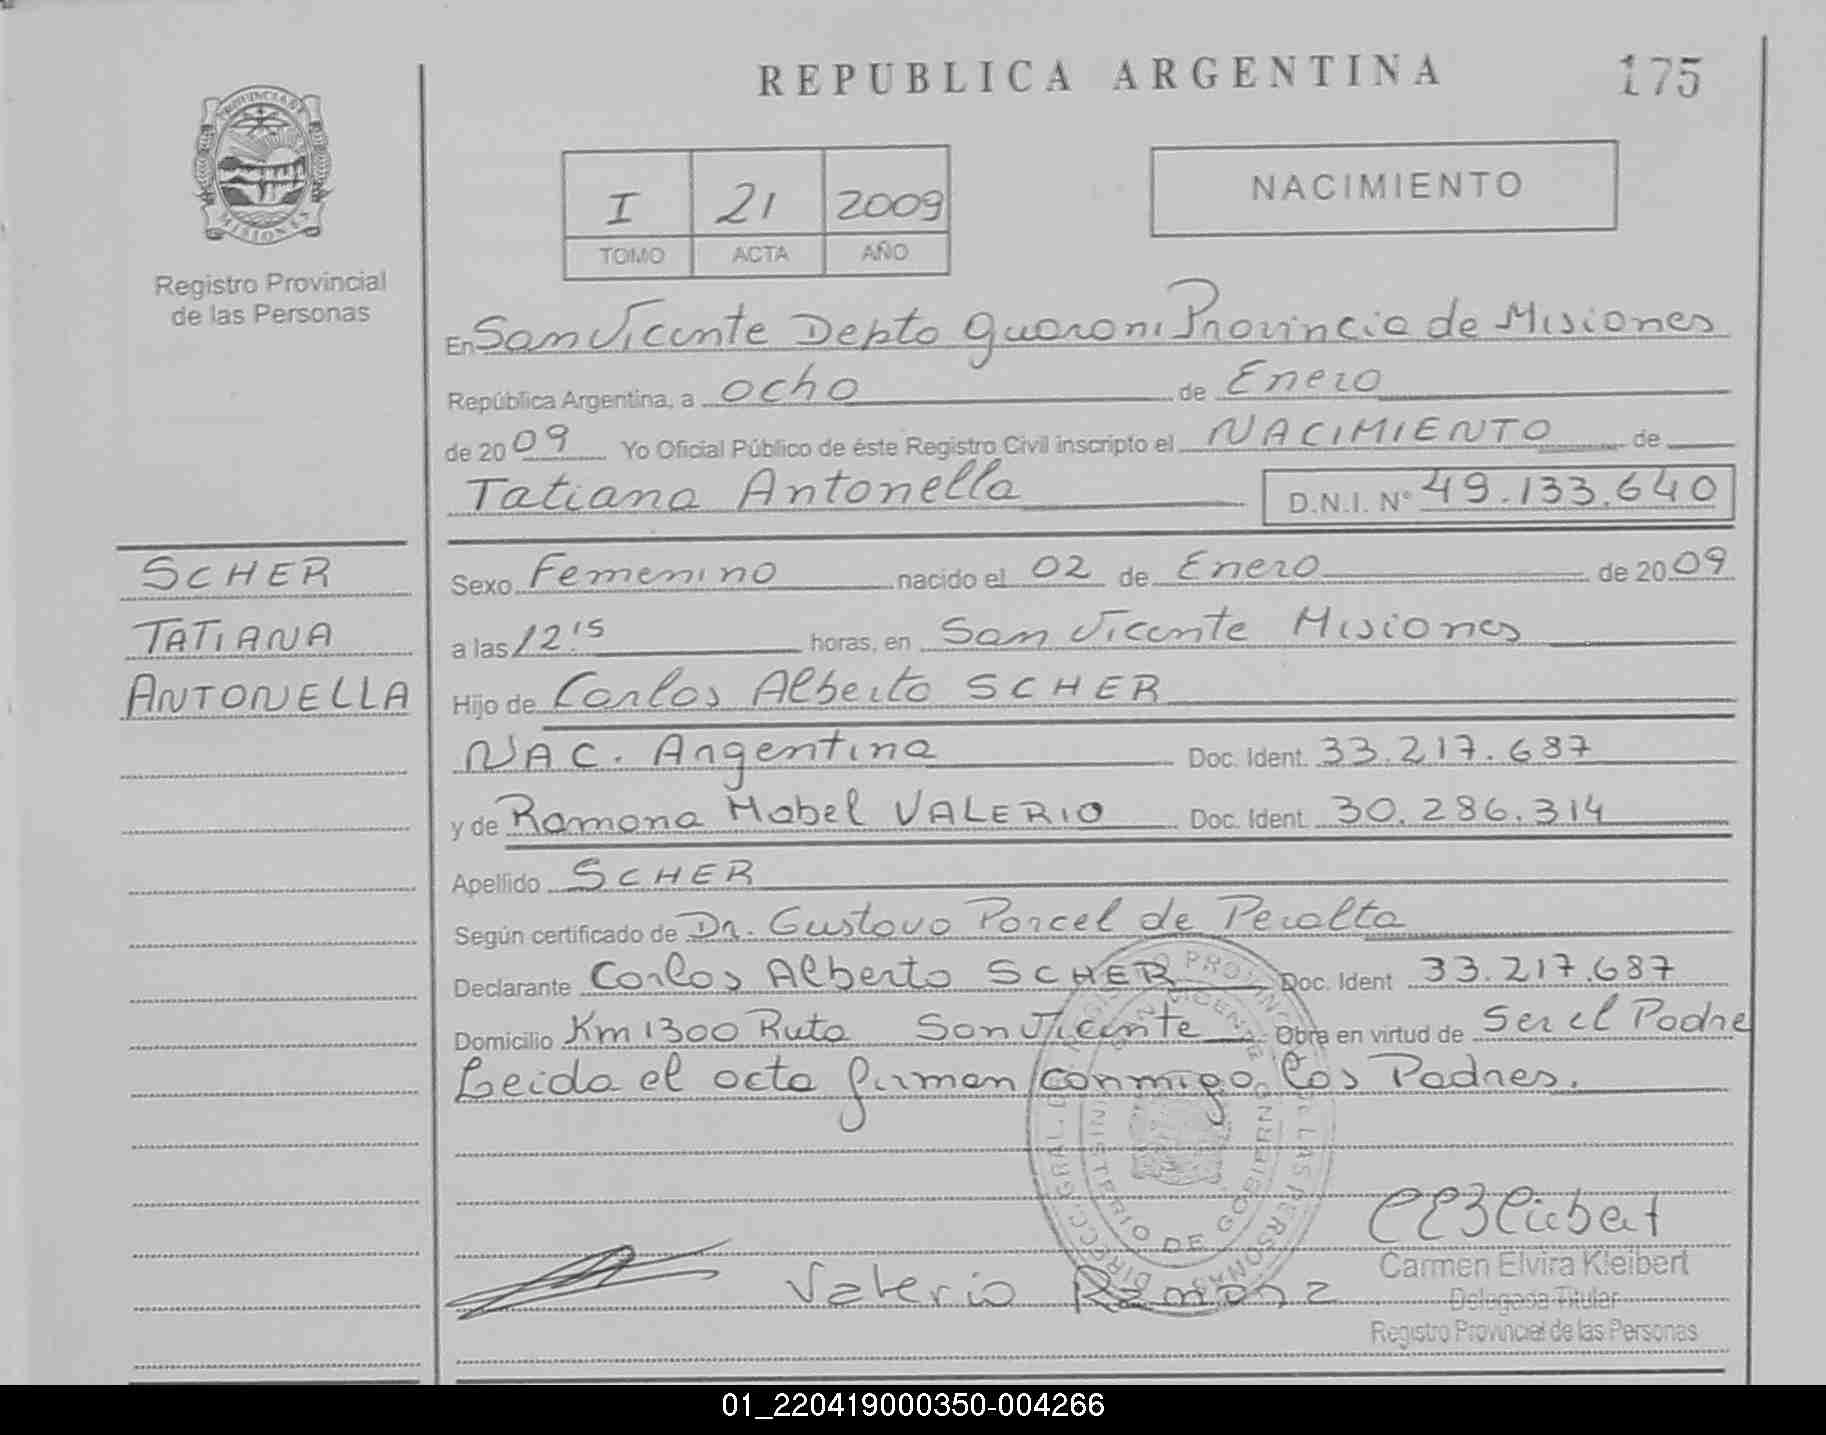 REPUBLICA ARGENTINA
175
PROVINCIA DE MISIONES
Registro Provincial
de las Personas
I 21 2009
TOMO ACTA AÑO
NACIMIENTO
En San Vicente Depto Guarani Provincia de Misiones
República Argentina, a ocho de Enero
de 2009 Yo Oficial Público de éste Registro Civil inscripto el NACIMIENTO de
Tatiana Antonella D.N.I. N° 49.133.640
SCHER
TATIANA
ANTONELLA
Sexo Femenino nacido el 02 de Enero de 2009
a las 12:15 horas, en San Vicente Misiones
Hijo de Carlos Alberto SCHER
NAC. Argentina Doc. Ident. 33.217.687
y de Ramona Mabel VALERIO Doc. Ident. 30.286.314
Apellido SCHER
Según certificado de Dr. Gustavo Porcel de Peralta
Declarante Carlos Alberto SCHER Doc. Ident 33.217.687
Domicilio Km 1300 Ruta San Vicente Obra en virtud de Ser el Padre
Leida el acta firman conmigo los Padres.
Valerio Ramona
Carmen Elvira Kleibert
Delegada Titular
Registro Provincial de las Personas
01_220419000350-004266